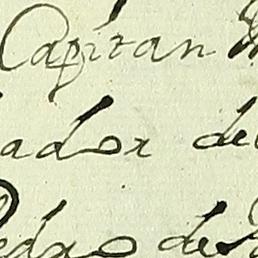 Capitan
ador de
edro de